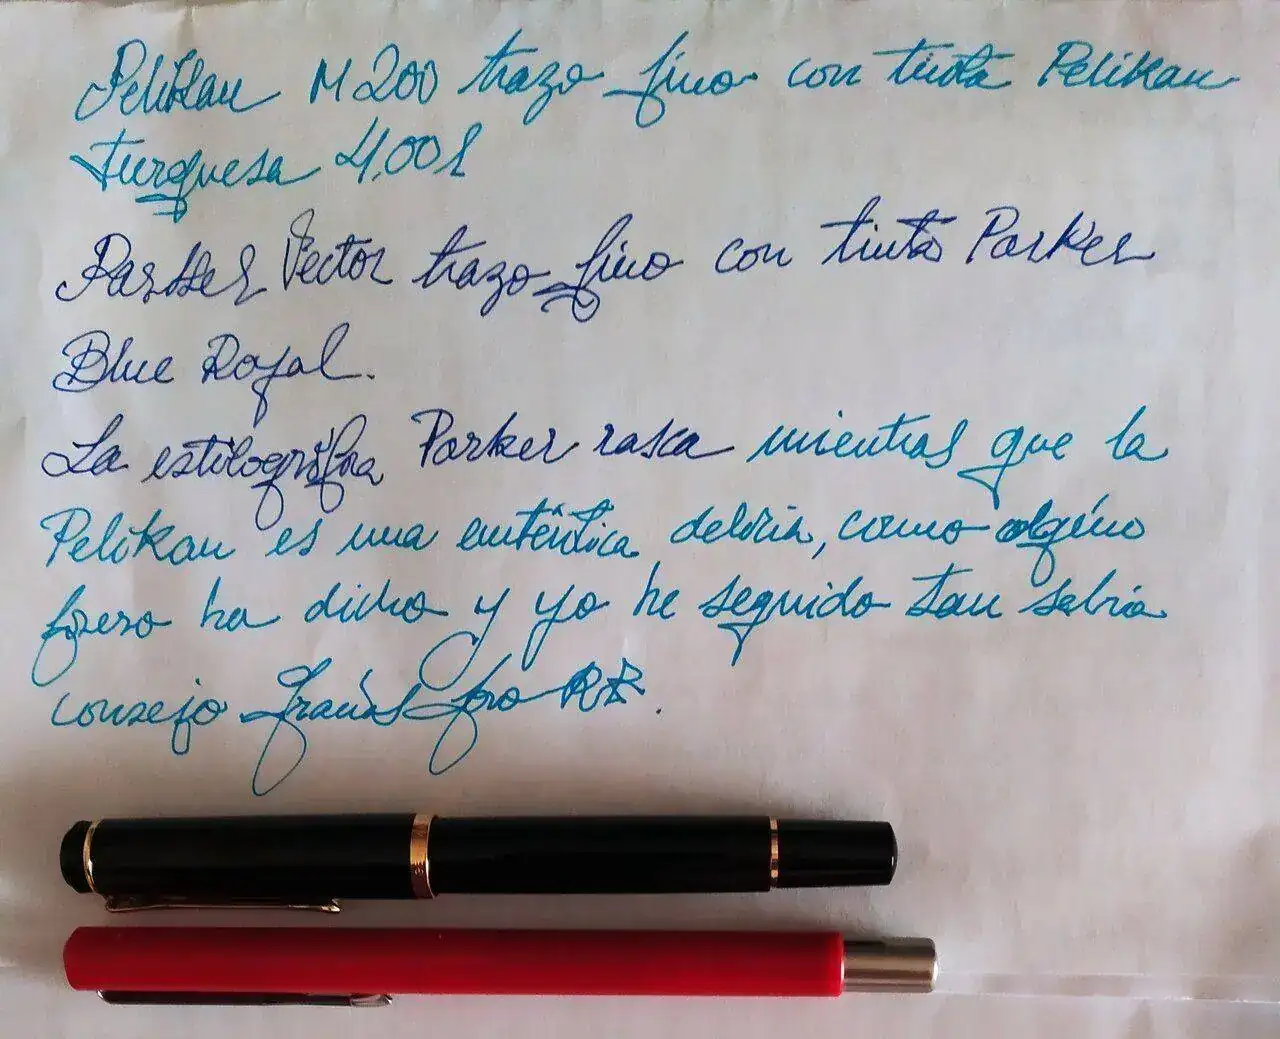 Pelikan M200 trazo fino con tinta Pelikan
turquesa 4.001
Parker Vector trazo fino con tinta Parker
Blue Royal.
La estilográfica Parker rasca mientras que la
Pelikan es una auténtica delicia, como algúno
forero ha dicho y yo he seguido tan sabia
consejo Gracias